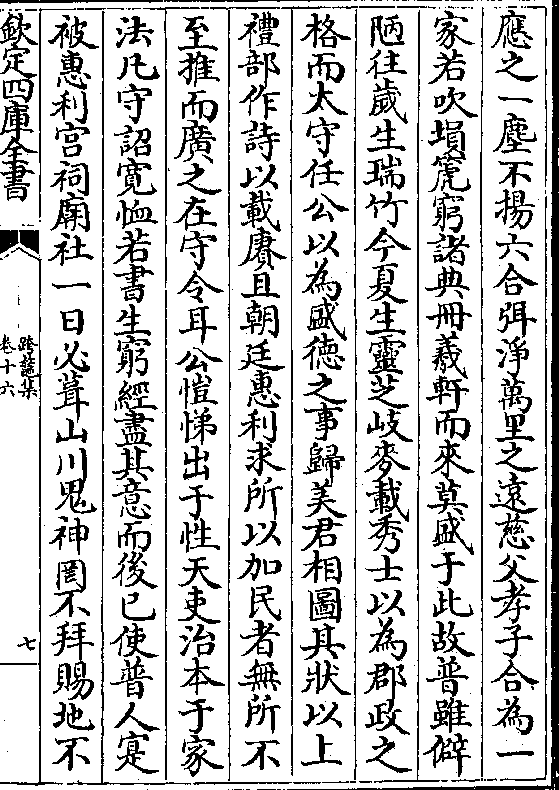 應之一塵不揚六合弭淨萬里之遠慈父孝子合為一
家若吹塤篪窮諸典冊羲軒而來莫盛于此故普雖僻
陋往歲生瑞竹今夏生靈芝岐麥載秀士以為郡政之
格而太守任公以為盛德之事歸美君相圖其狀以上
禮部作詩以載賡且朝廷惠利求所以加民者無所不
至推而廣之在守令耳公愷悌出于性天吏治本于家
法凡守詔寛恤若書生窮經盡其意而後已使普人寔
被惠利宫祠廟社一日必葺山川鬼神罔不拜賜地不
欽定四庫全書
跨鼇集
卷十六
七